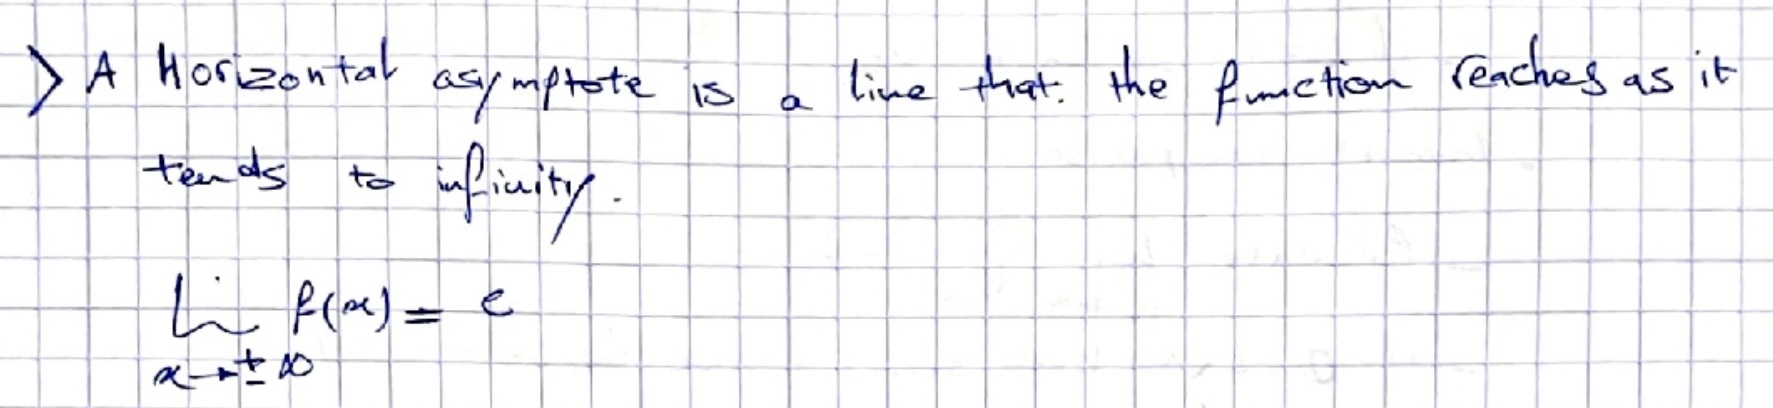 > A Horizontal asymptote is a line that the function reaches as it
tends to infinity.
Lim f(x) = c
x→±∞